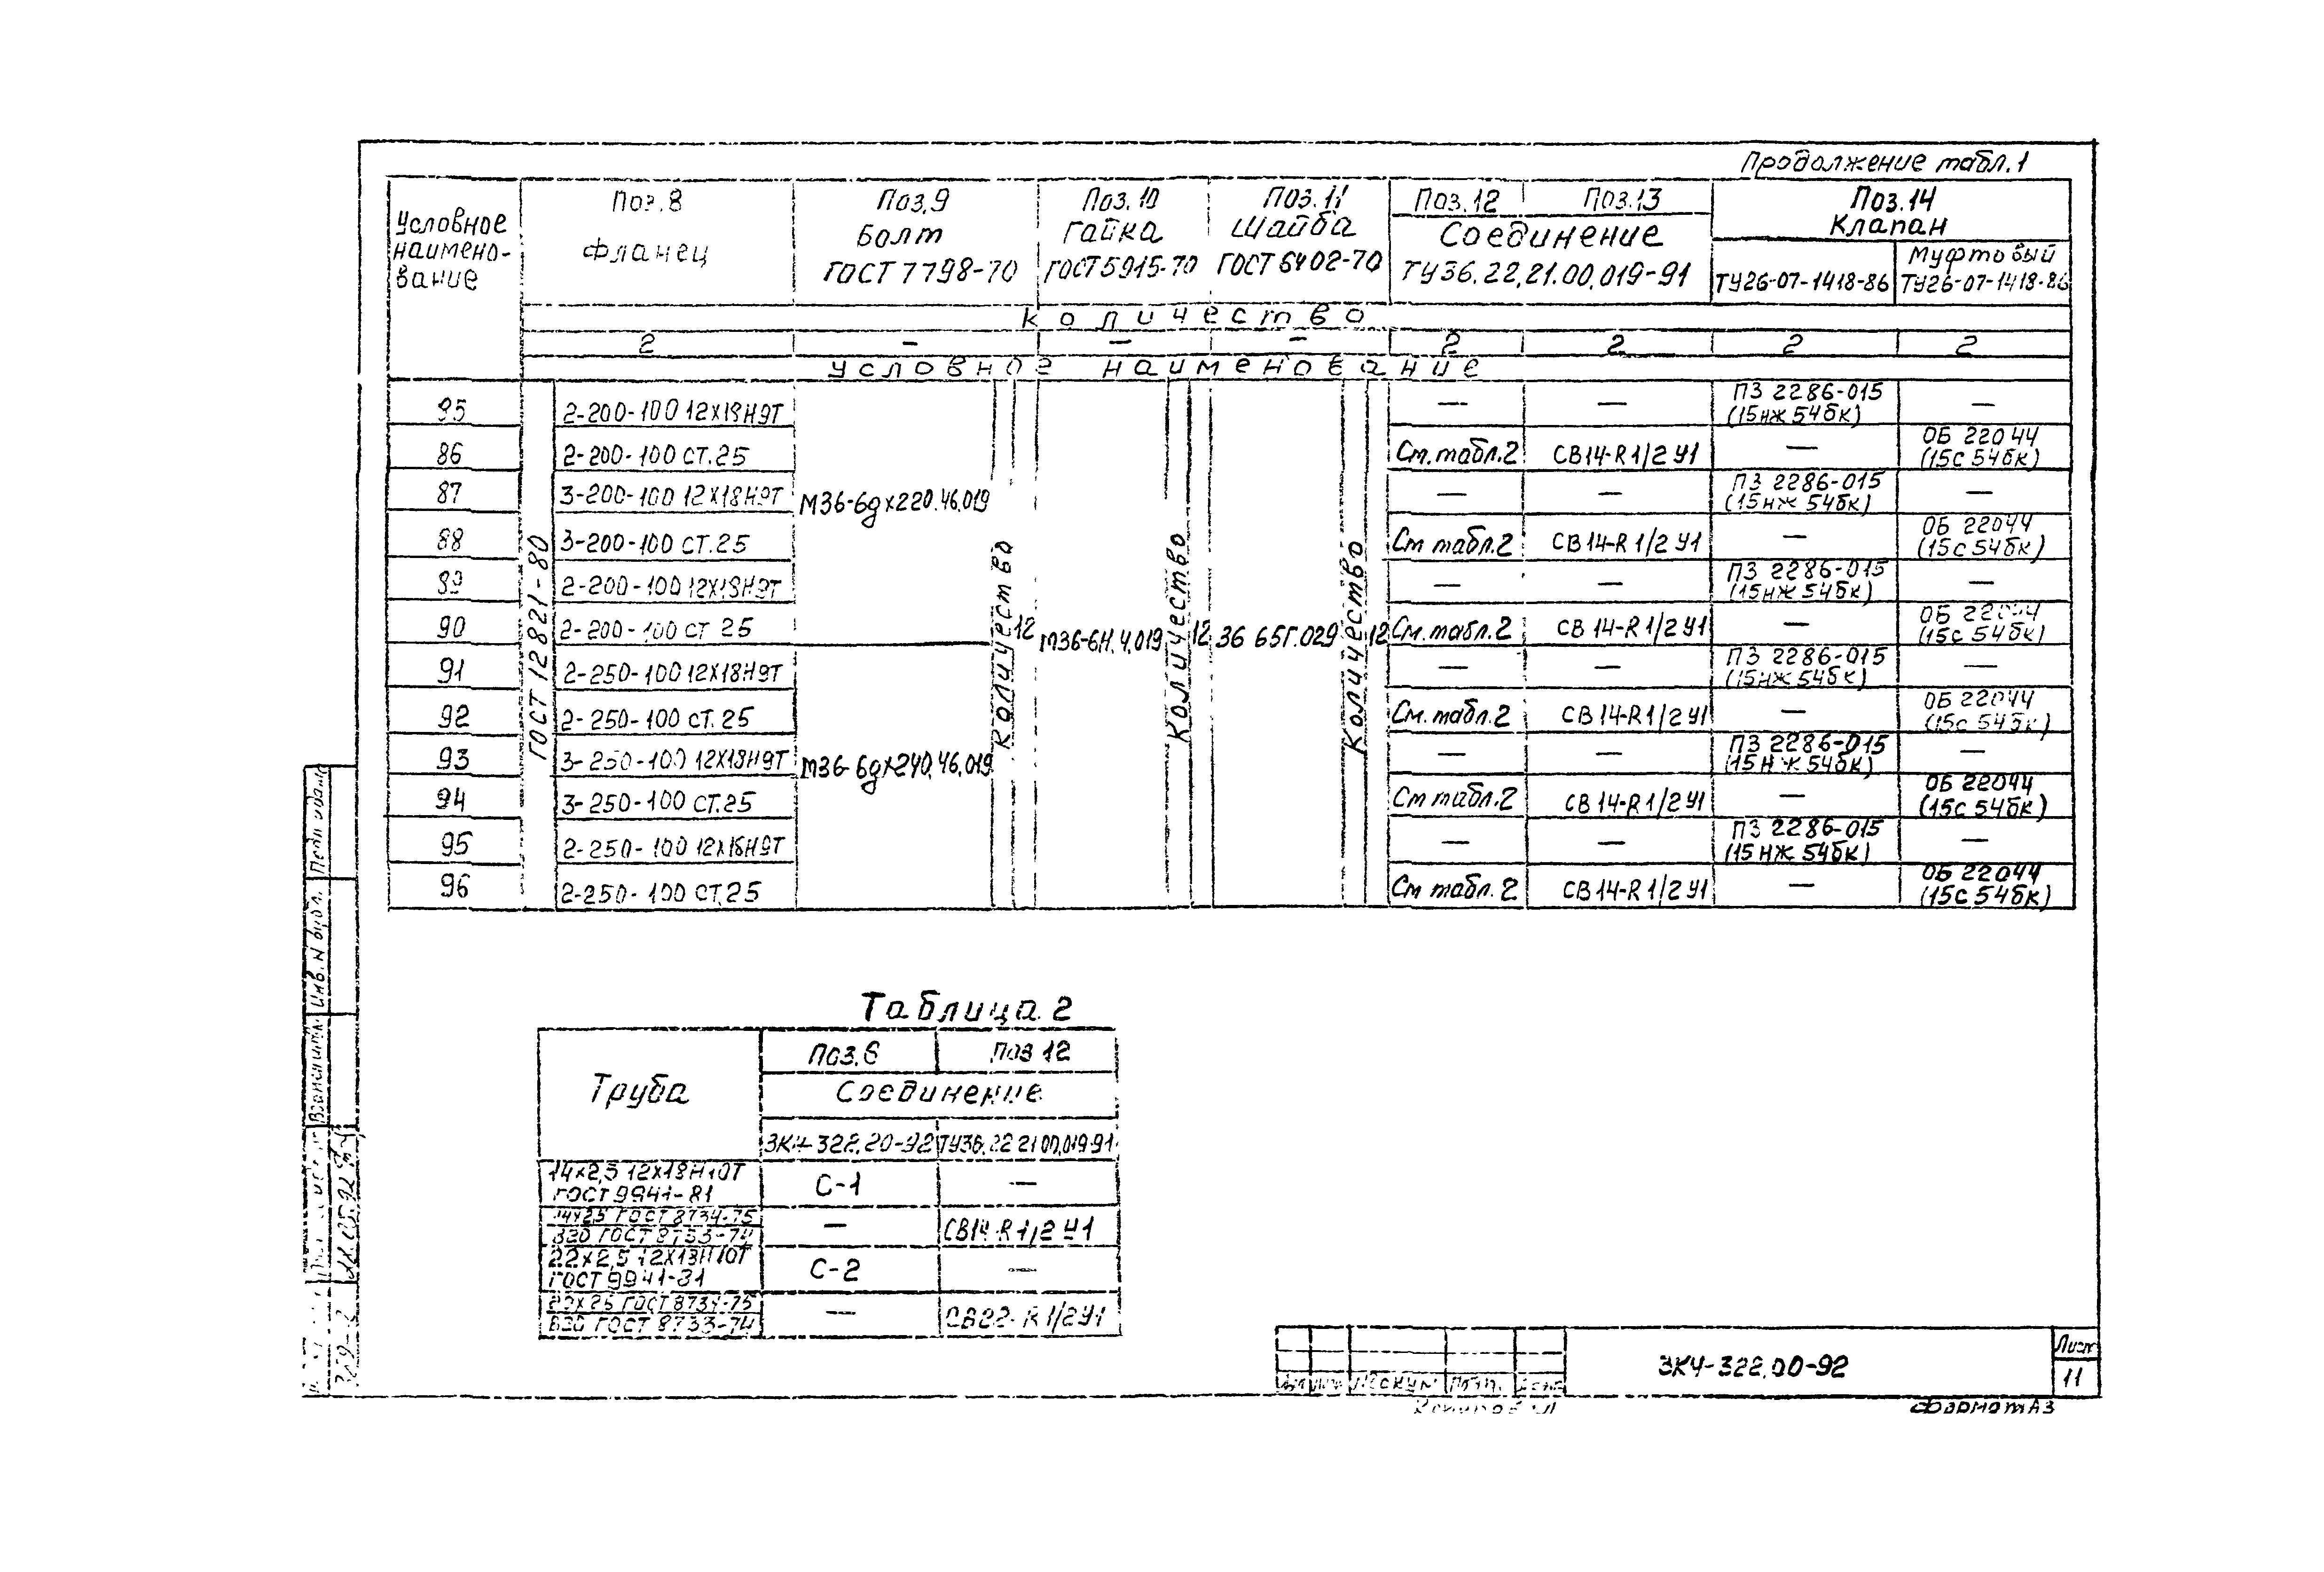 Продолжение табл.1
Условное наимено-вание
Поз.8 Поз.9 Поз.10 Поз.11 Поз.12 Поз.13 Поз.14
Фланец Болт Гайка Шайба Соединение Клапан
ГОСТ 7798-70 ГОСТ5915-70 ГОСТ 6402-70 ТУ36.22.21.00.019-91 ТУ26-07-1418-86 Муфтовый ТУ26-07-1418-86
Количество
2 — — — 2 2 2 2
Условное наименование
ГОСТ 12821-80
М36-6gх220.46.019
М36-6gх240.46.019
Количество 12
М36-6Н.4.019
Количество 12
36 65Г.029
Количество 12
85 2-200-100 12Х18Н9Т — — ПЗ 2286-015 (15нж 54бк) —
86 2-200-100 СТ.25 См.табл.2 СВ14-R1/2 У1 — ОБ 22044 (15с 54бк)
87 3-200-100 12Х18Н9Т — — ПЗ 2286-015 (15нж 54бк) —
88 3-200-100 СТ.25 См табл.2 СВ14-R1/2 У1 — ОБ 22044 (15с 54бк)
89 2-200-100 12Х18Н9Т — — ПЗ 2286-015 (15нж 54бк) —
90 2-200-100 СТ 25 См.табл.2 СВ14-R1/2 У1 — ОБ 22044 (15с 54бк)
91 2-250-100 12Х18Н9Т — — ПЗ 2286-015 (15нж 54бк) —
92 2-250-100 СТ.25 См.табл.2 СВ14-R1/2 У1 — ОБ 22044 (15с 54бк)
93 3-250-100 12Х18Н9Т — — ПЗ 2286-015 (15нж 54бк) —
94 3-250-100 СТ.25 См табл.2 СВ14-R1/2 У1 — ОБ 22044 (15с 54бк)
95 2-250-100 12Х18Н9Т — — ПЗ 2286-015 (15нж 54бк) —
96 2-250-100 СТ.25 См табл.2 СВ14-R1/2 У1 — ОБ 22044 (15с 54бк)
Таблица 2
Труба Поз.6 Поз 12
Соединение
ЗК4-322.20-92 ТУ36.22 21 00.019-91
14х2,5 12Х18Н10Т
ГОСТ 9941-81 С-1 —
14х2,5 ГОСТ 8734-75
В20 ГОСТ 8733-74 — СВ14-R1/2 У1
22х2,5 12Х18Н10Т
ГОСТ 9941-81 С-2 —
22х2,5 ГОСТ 8734-75
В20 ГОСТ 8733-74 — СВ22-R1/2У1
Инв. N дубл.
ЗК4-322.00-92
Лист
11
Формат А3